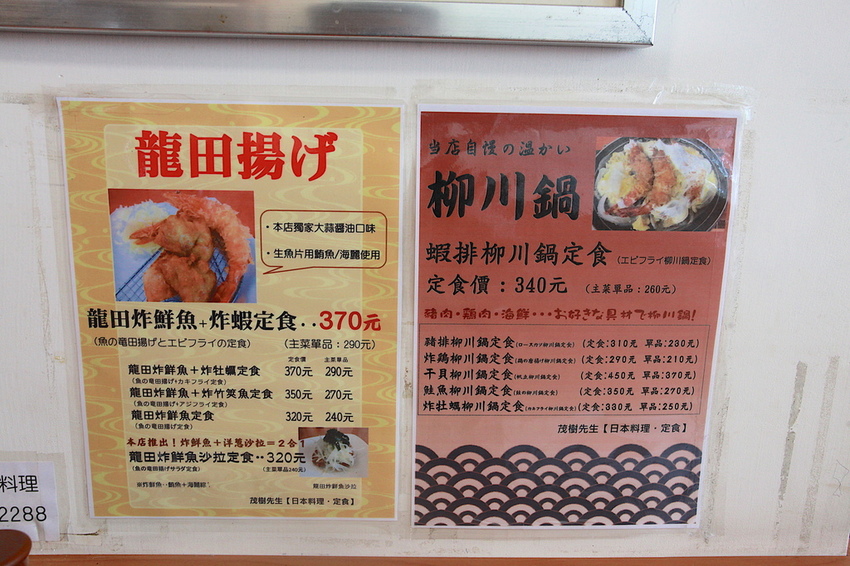 龍田揚げ
・本店獨家大蒜醬油口味
・生魚片用鮪魚/海鱺使用
龍田炸鮮魚+炸蝦定食‥370元
(魚の竜田揚げとエビフライの定食) (主菜單品:290元)
定食價 主菜單品
龍田炸鮮魚+炸牡蠣定食 370元 290元
(魚の竜田揚げ+カキフライ定食)
龍田炸鮮魚+炸竹筴魚定食 350元 270元
(魚の竜田揚げ+アジフライ定食)
龍田炸鮮魚定食 320元 240元
(魚の竜田揚げ定食)
本店推出!炸鮮魚+洋蔥沙拉=2合1
龍田炸鮮魚沙拉定食‥320元
(魚の竜田揚げサラダ定食) (主菜單品240元)
※炸鮮魚‥鮪魚+海鱺
龍田炸鮮魚沙拉
茂樹先生【日本料理・定食】
当店自慢の温かい
柳川鍋
蝦排柳川鍋定食(エビフライ柳川鍋定食)
定食價:340元 (主菜單品:260元)
豬肉・鶏肉・海鮮・・・お好きな具材で柳川鍋!
豬排柳川鍋定食(ロースカツ柳川鍋定食) (定食:310元 單品:230元)
炸鶏柳川鍋定食(鶏の唐揚げ柳川鍋定食) (定食:290元 單品:210元)
干貝柳川鍋定食(帆立柳川鍋定食) (定食:450元 單品:370元)
鮭魚柳川鍋定食(鮭の柳川鍋定食) (定食:350元 單品:270元)
炸牡蠣柳川鍋定食(カキフライ柳川鍋定食) (定食:330元 單品:250元)
茂樹先生【日本料理・定食】
料理
2288